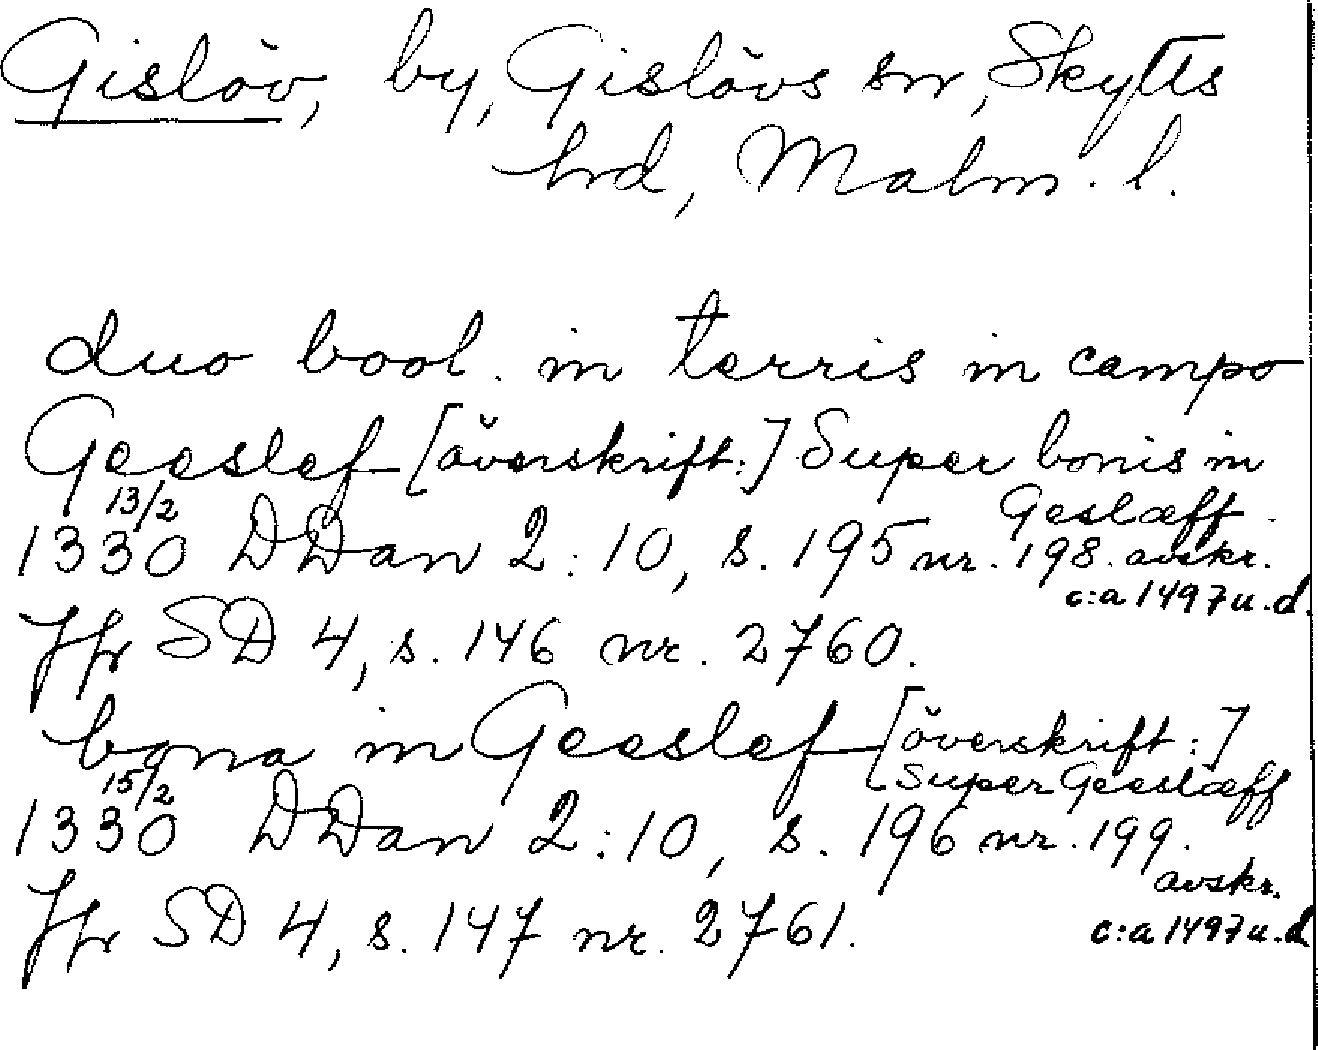 Gislöv, by, Gislövs sn, Skytts
hrd, Malm. l.
duo bool. in terris in campo
Geeslef [överskrift:] Super bonis in
Geslæff.
13/2
1330 DDan 2:10, s. 195 nr. 198. avskr.
c:a 1497 u.d.
Jfr SD 4, s. 146 nr. 2760.
bona in Geeslef [överskrift:]
Super Geeslæff
15/2
1330 DDan 2:10, s. 196 nr. 199.
avskr.
Jfr SD 4, s. 147 nr. 2761.
c:a 1497 u.d